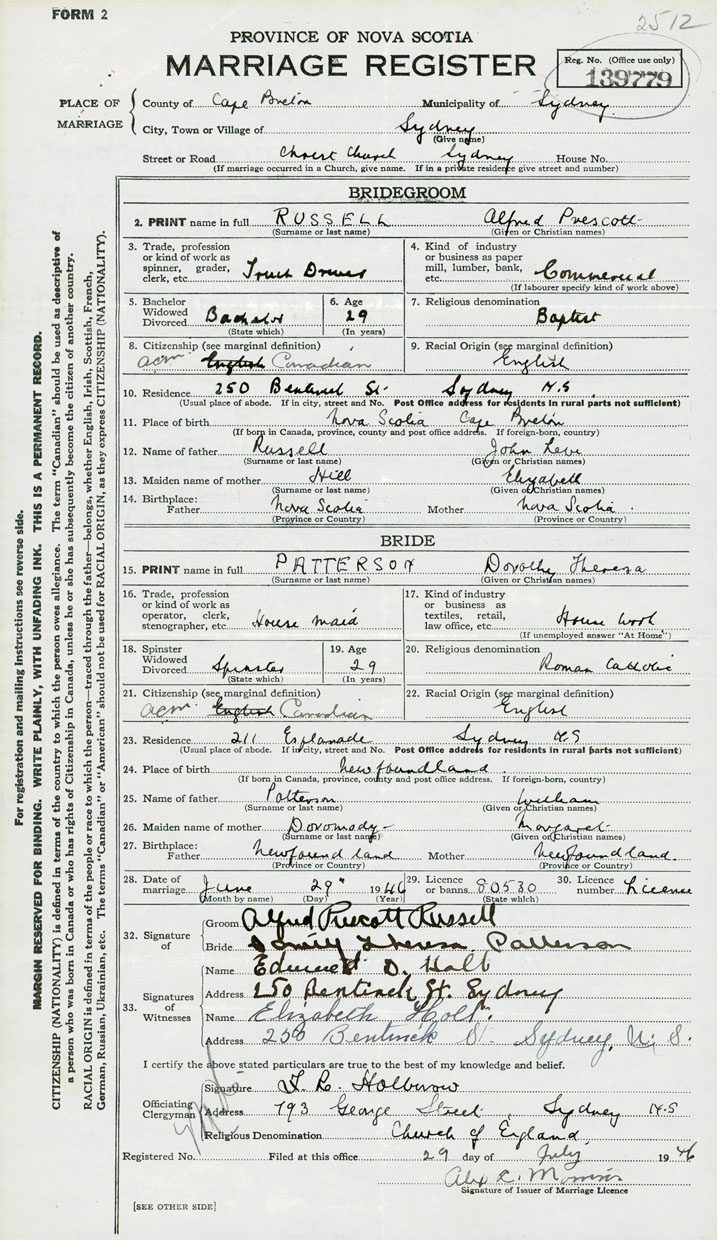 FORM 2
2512
PROVINCE OF NOVA SCOTIA
MARRIAGE REGISTER
Reg. No. (Office use only)
139779
PLACE OF MARRIAGE
County of Cape Breton Municipality of Sydney
City, Town or Village of Sydney
(Give name)
Street or Road Christ Church Sydney House No.
(If marriage occurred in a Church, give name. If in a private residence give street and number)
BRIDEGROOM
2. PRINT name in full RUSSELL Alfred Prescott
(Surname or last name) (Given or Christian names)
3. Trade, profession or kind of work as spinner, grader, clerk, etc. Truck Driver
4. Kind of industry or business as paper mill, lumber, bank, etc. Commercial
(If labourer specify kind of work above)
5. Bachelor Widowed Divorced Bachelor
(State which)
6. Age 29
(In years)
7. Religious denomination Baptist
8. Citizenship (see marginal definition)
acm English Canadian
9. Racial Origin (see marginal definition)
English
10. Residence 250 Bentinck St. Sydney N.S
(Usual place of abode. If in city, street and No. Post Office address for residents in rural parts not sufficient)
11. Place of birth Nova Scotia Cape Breton
(If born in Canada, province, county and post office address. If foreign-born, country)
12. Name of father Russell John Levi
(Surname or last name) (Given or Christian names)
13. Maiden name of mother Hill Elizabeth
(Surname or last name) (Given or Christian names)
14. Birthplace: Father Nova Scotia Mother Nova Scotia
(Province or Country) (Province or Country)
BRIDE
15. PRINT name in full PATTERSON Dorothy Theresa
(Surname or last name) (Given or Christian names)
16. Trade, profession or kind of work as operator, clerk, stenographer, etc. House maid
17. Kind of industry or business as textiles, retail, law office, etc. House work
(If unemployed answer "At Home")
18. Spinster Widowed Divorced Spinster
(State which)
19. Age 29
(In years)
20. Religious denomination
Roman Catholic
21. Citizenship (see marginal definition)
acm English Canadian
22. Racial Origin (see marginal definition)
English
23. Residence 211 Esplanade Sydney N.S
(Usual place of abode. If in city, street and No. Post Office address for residents in rural parts not sufficient)
24. Place of birth Newfoundland
(If born in Canada, province, county and post office address. If foreign-born, country)
25. Name of father Patterson William
(Surname or last name) (Given or Christian names)
26. Maiden name of mother Margaret
(Surname or last name) (Given or Christian names)
27. Birthplace: Father Newfoundland Mother Newfoundland.
(Province or Country) (Province or Country)
28. Date of marriage June 29" 1946
(Month by name) (Day) (Year)
29. Licence or banns 80530
(State which)
30. Licence number License
32. Signature of
Groom Alfred Prescott Russell
Bride Theresa Patterson
33. Signatures of Witnesses
Name Edward D. Holt
Address 250 Bentinck St. Sydney
Name Elizabeth Holt.
Address 250 Bentinck St. Sydney, N. S.
I certify the above stated particulars are true to the best of my knowledge and belief.
Officiating Clergyman
Signature
Address 793 George Street, Sydney N.S
Religious Denomination Church of England,
Registered No. Filed at this office 29 day of July 1946
Signature of Issuer of Marriage Licence
[SEE OTHER SIDE]
For registration and mailing instructions see reverse side.
MARGIN RESERVED FOR BINDING. WRITE PLAINLY, WITH UNFADING INK. THIS IS A PERMANENT RECORD.
CITIZENSHIP (NATIONALITY) is defined in terms of the country to which the person owes allegiance. The term "Canadian" should be used as descriptive of
a person who was born in Canada or who has rights of Citizenship in Canada, unless he or she has subsequently become the citizen of another country.
RACIAL ORIGIN is defined in terms of the people or race to which the person—traced through the father—belongs, whether English, Irish, Scottish, French,
German, Russian, Ukrainian, etc. The terms "Canadian" or "American" should not be used for RACIAL ORIGIN, as they express CITIZENSHIP (NATIONALITY).